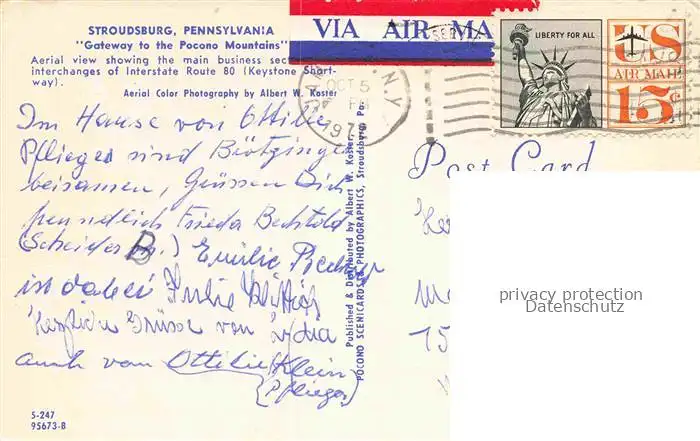 STROUDSBURG, PENNSYLVANIA
"Gateway to the Pocono Mountains"
Aerial view showing the main business sec
interchanges of Interstate Route 80 (Keystone Short-
way).
Aerial Color Photography by Albert W. Koster
VIA AIR MA
LIBERTY FOR ALL
US
AIR MAIL
15¢
OCT 5
PM
N.Y.
Im Hause von Ottilie
Pflieger sind Brötzinger
beisamen, Grüssen Dich
freundlich Frieda Bechtold
(Scheider B.) Emilie
ist dabei
Herzliche Grüsse von Lydia
auch von Ottilie Klein
(Pflieger)
Published & Distributed by Albert W. Koster
POCONO SCENICARDS & PHOTOGRAPHICS, Stroudsburg, Pa.
Post Card
15
privacy protection
Datenschutz
S-247
95673-B